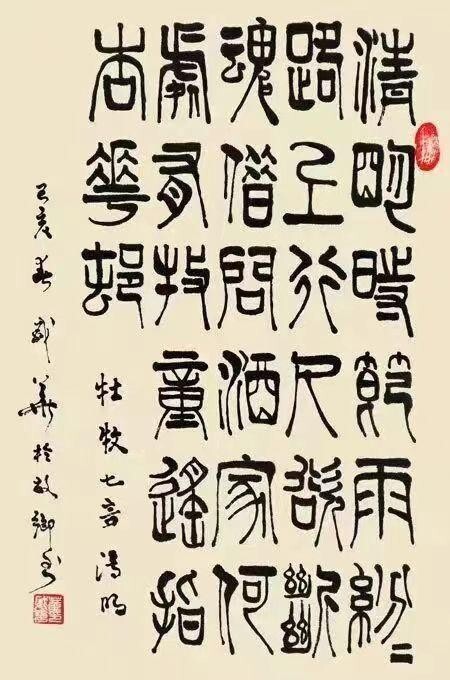 清明時節雨紛〻
路上行人欲斷
魂借問酒家何
處有牧童遙指
杏花邨
杜牧七言清明
己亥春華於故鄉